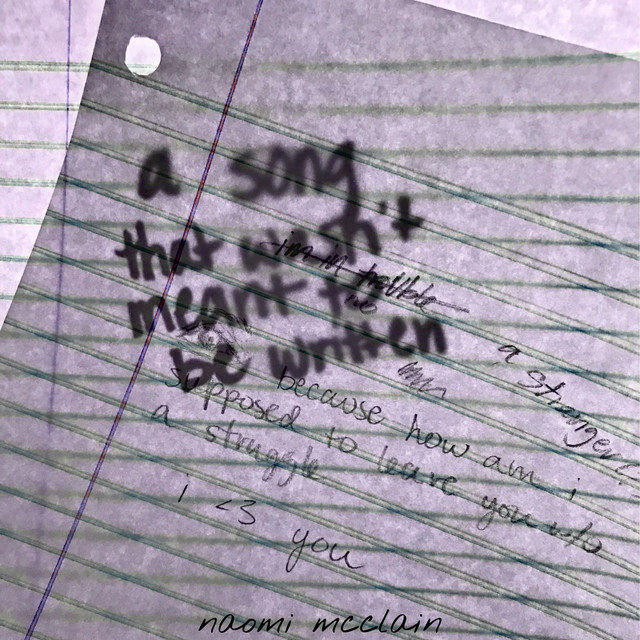 a song
that wasn't
i'm in trouble
meant to
be written
a stranger!
because how am i
supposed to leave you w/o
a struggle
i <3 you
naomi mcclain